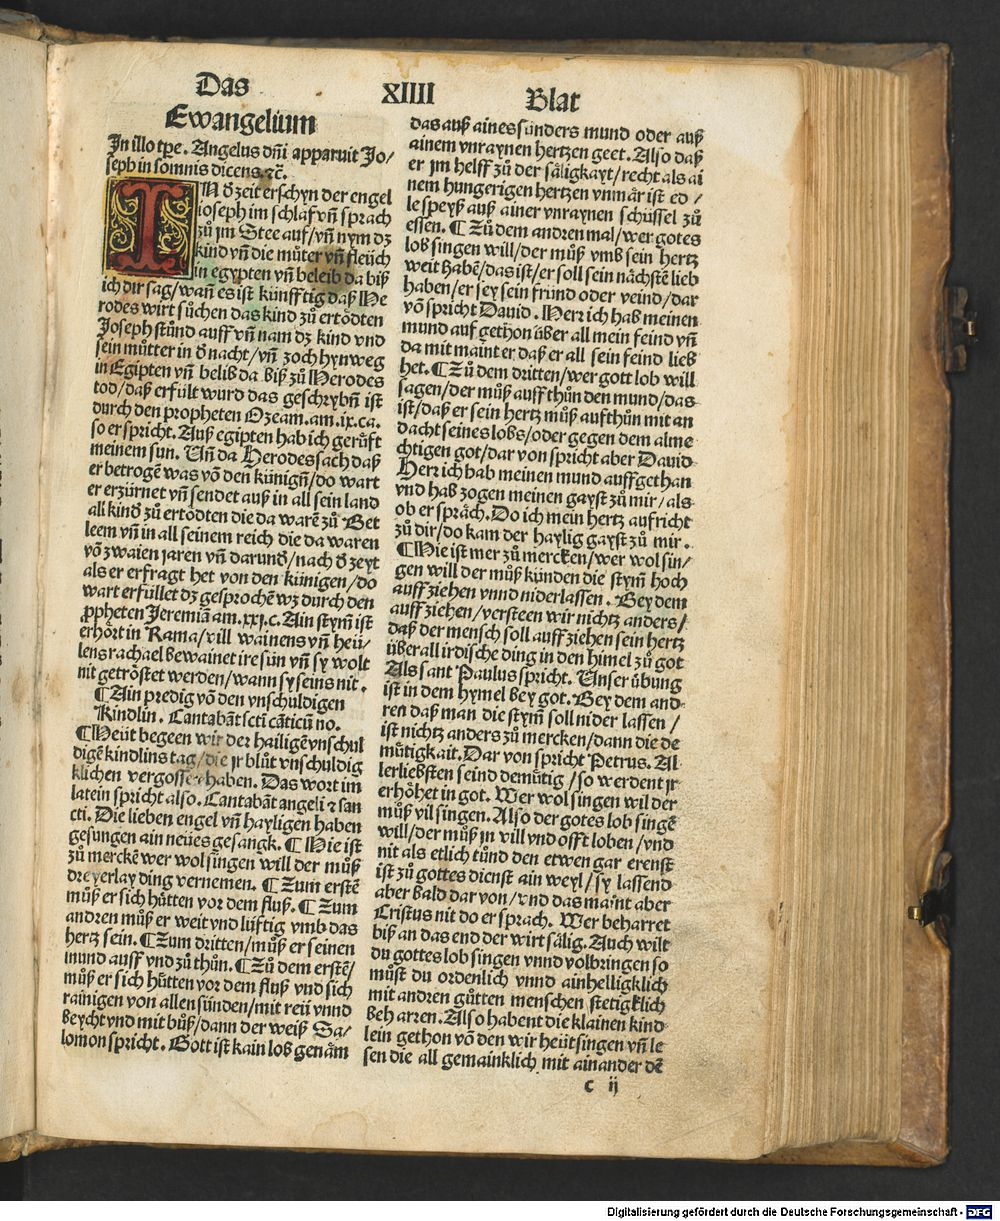 Das XIIII Blat
Ewangelium
In illo tpe. Angelus dñi apparuit Jo/
seph in somnis dicens. ⁊c̃.
IN d̕ zeit erschyn der engel
ioseph im schlaf vñ sprach
zů jm Stee auf/vñ nym dz
kind vñ die můter vñ fleüch
in egypten vñ beleib da biß
ich dir sag/wañ es ist künfftig daß He
rodes wirt sůchen das kind zů ertödten
Joseph stůnd auff vñ nam dz kind vnd
sein můtter in d̕ nacht/vñ zoch hynweg
in Egipten vñ belib da biß zů Herodes
tod/daß erfült wurd das geschrybñ ist
durch den propheten Ozeam. am. ix. ca.
so er spricht. Auß egipten hab ich gerůft
meinem sun. Uñ da Herodes sach daß
er betrogẽ was võ den künigñ/do wart
er erzürnet vñ sendet auß in all sein land
all kind̕ zů ertödten die da warẽ zů Bet
leem vñ in all seinem reich die da waren
võ zwaien jaren vñ darund̕/nach d̕ zeyt
als er erfragt het von den künigen/do
wart erfüllet dz gesprochẽ wz durch den
ꝓpheten Jeremiã am. xxi. c. Ain stym̃ ist
erhört in Rama/vill wainens vñ heü/
lens rachael bewainet ire sün vñ sy wolt
nit getröstet werden/wann sy seins nit.
¶ Ain predig võ den vnschuldigen
Kindlin. Cantabãt scti cãticũ no.
¶ Heüt begeen wir der hailigẽ vnschul
digẽ kindlins tag/die jr blůt vnschuldig
klichen vergossen haben. Das wort im
latein spricht also. Cantabãt angeli ⁊ san
cti. Die lieben engel vñ hayligen haben
gesungen ain neües gesangk. ¶ Hie ist
zů merckẽ wer wol singen will der můß
dreyerlay ding vernemen. ¶ Zum erstẽ
můß er sich hütten vor dem fluß. ¶ Zum
andren můß er weit vnd lüftig vmb das
hertz sein. ¶ Zum dritten/můß er seinen
mund auff vnd zů thůn. ¶ Zů dem erstẽ/
můß er sich hütten vor dem fluß vnd sich
rainigen von allen sünden/mit reü vnnd
beycht vnd mit bůß/dann der weiß Sa/
lomon spricht. Gott ist kain lob genåm
das auß aines sünders mund oder auß
ainem vnraynen hertzen geet. Also daß
er jm helff zů der såligkayt/recht als ai
nem hungerigen hertzen vnmår ist ed/
le speyß auß ainer vnraynen schüssel zů
essen. ¶ Zů dem andren mal/wer gotes
lob singen will/der můß vmb sein hertz
weit habẽ/das ist/er soll sein nåchstẽ lieb
haben/er sey sein fründ oder veind/dar
võ spricht David. Herr ich hab meinen
mund auf gethon über all mein feind vñ
da mit maint er daß er all sein feind lieb
het. ¶ Zů dem dritten/wer gott lob will
sagen/der můß auff thůn den mund/das
ist/daß er sein hertz můß aufthůn mit an
dacht seines lobs/oder gegen dem alme
chtigen got/dar von spricht aber David
Herr ich hab meinen mund auffgethan
vnd hab zogen meinen gayst zů mir/als
ob er språch. Do ich mein hertz aufricht
zů dir/do kam der haylig gayst zů mir.
¶ Hie ist mer zů mercken/wer wol sin/
gen will der můß künden die stym̃ hoch
auff ziehen vnnd niderlassen. Bey dem
auff ziehen/versteen wir nichtz anders/
daß der mensch soll auff ziehen sein hertz
über all irdische ding in den himel zů got
Als sant Paulus spricht. Unser übung
ist in dem hymel bey got. Bey dem and-
ren daß man die stym̃ soll nider lassen/
ist nichtz anders zů mercken/dann die de
můtigkait. Dar von spricht Petrus. Al
lerliebsten seind demütig/so werdent jr
erhöhet in got. Wer wol singen wil der
můß vil singen. Also der gotes lob singẽ
will/der můß jn vill vnd offt loben/vnd
nit als etlich tůnd den etwen gar erenst
ist zů gottes dienst ain weyl/sy lassend
aber bald dar von/vnd das maint aber
Cristus nit do er sprach. Wer beharret
biß an das end der wirt sålig. Auch wilt
du gottes lob singen vnnd volbringen so
můst du ordenlich vnnd ainhelligklich
mit andren gůtten menschen stetigklich
beharren. Also habent die klainen kind-
lein gethon võ den wir heüt singen vñ le
sen die all gemainklich mit ainander dẽ
c ij
Digitalisierung gefördert durch die Deutsche Forschungsgemeinschaft - DFG